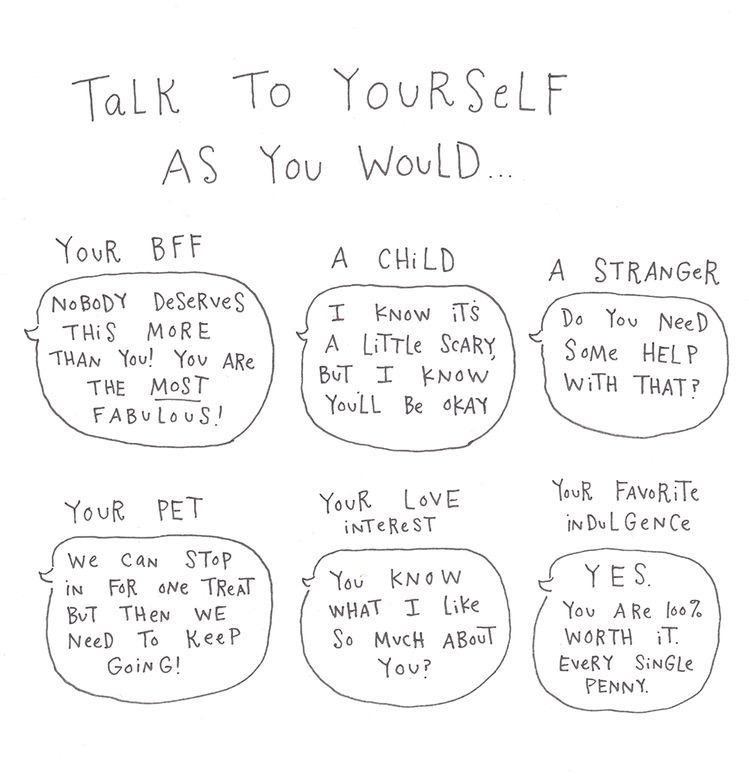 TaLK To YouRSeLF
AS You WouLD...
YouR BFF
NoBoDY DeSeRVeS
THiS MoRE
THAN You! You ARe
THE MoST
FABuLouS!
A CHiLD
I KNoW iT'S
A LiTTLe SCARY,
BuT I KNoW
You'LL Be oKAY
A STRANGeR
Do You NeeD
SoMe HELP
WiTH THAT?
YouR PET
We CaN SToP
iN FoR oNe TReAT
BuT THeN WE
NeeD To KeeP
GoiNG!
YouR LoVE
iNTeReST
You KNoW
WHAT I LiKe
So MuCH ABouT
You?
YouR FAVoRiTe
iNDuLGeNCe
YES.
You ARe 100%
WoRTH iT.
EVeRY SiNGLe
PENNY.